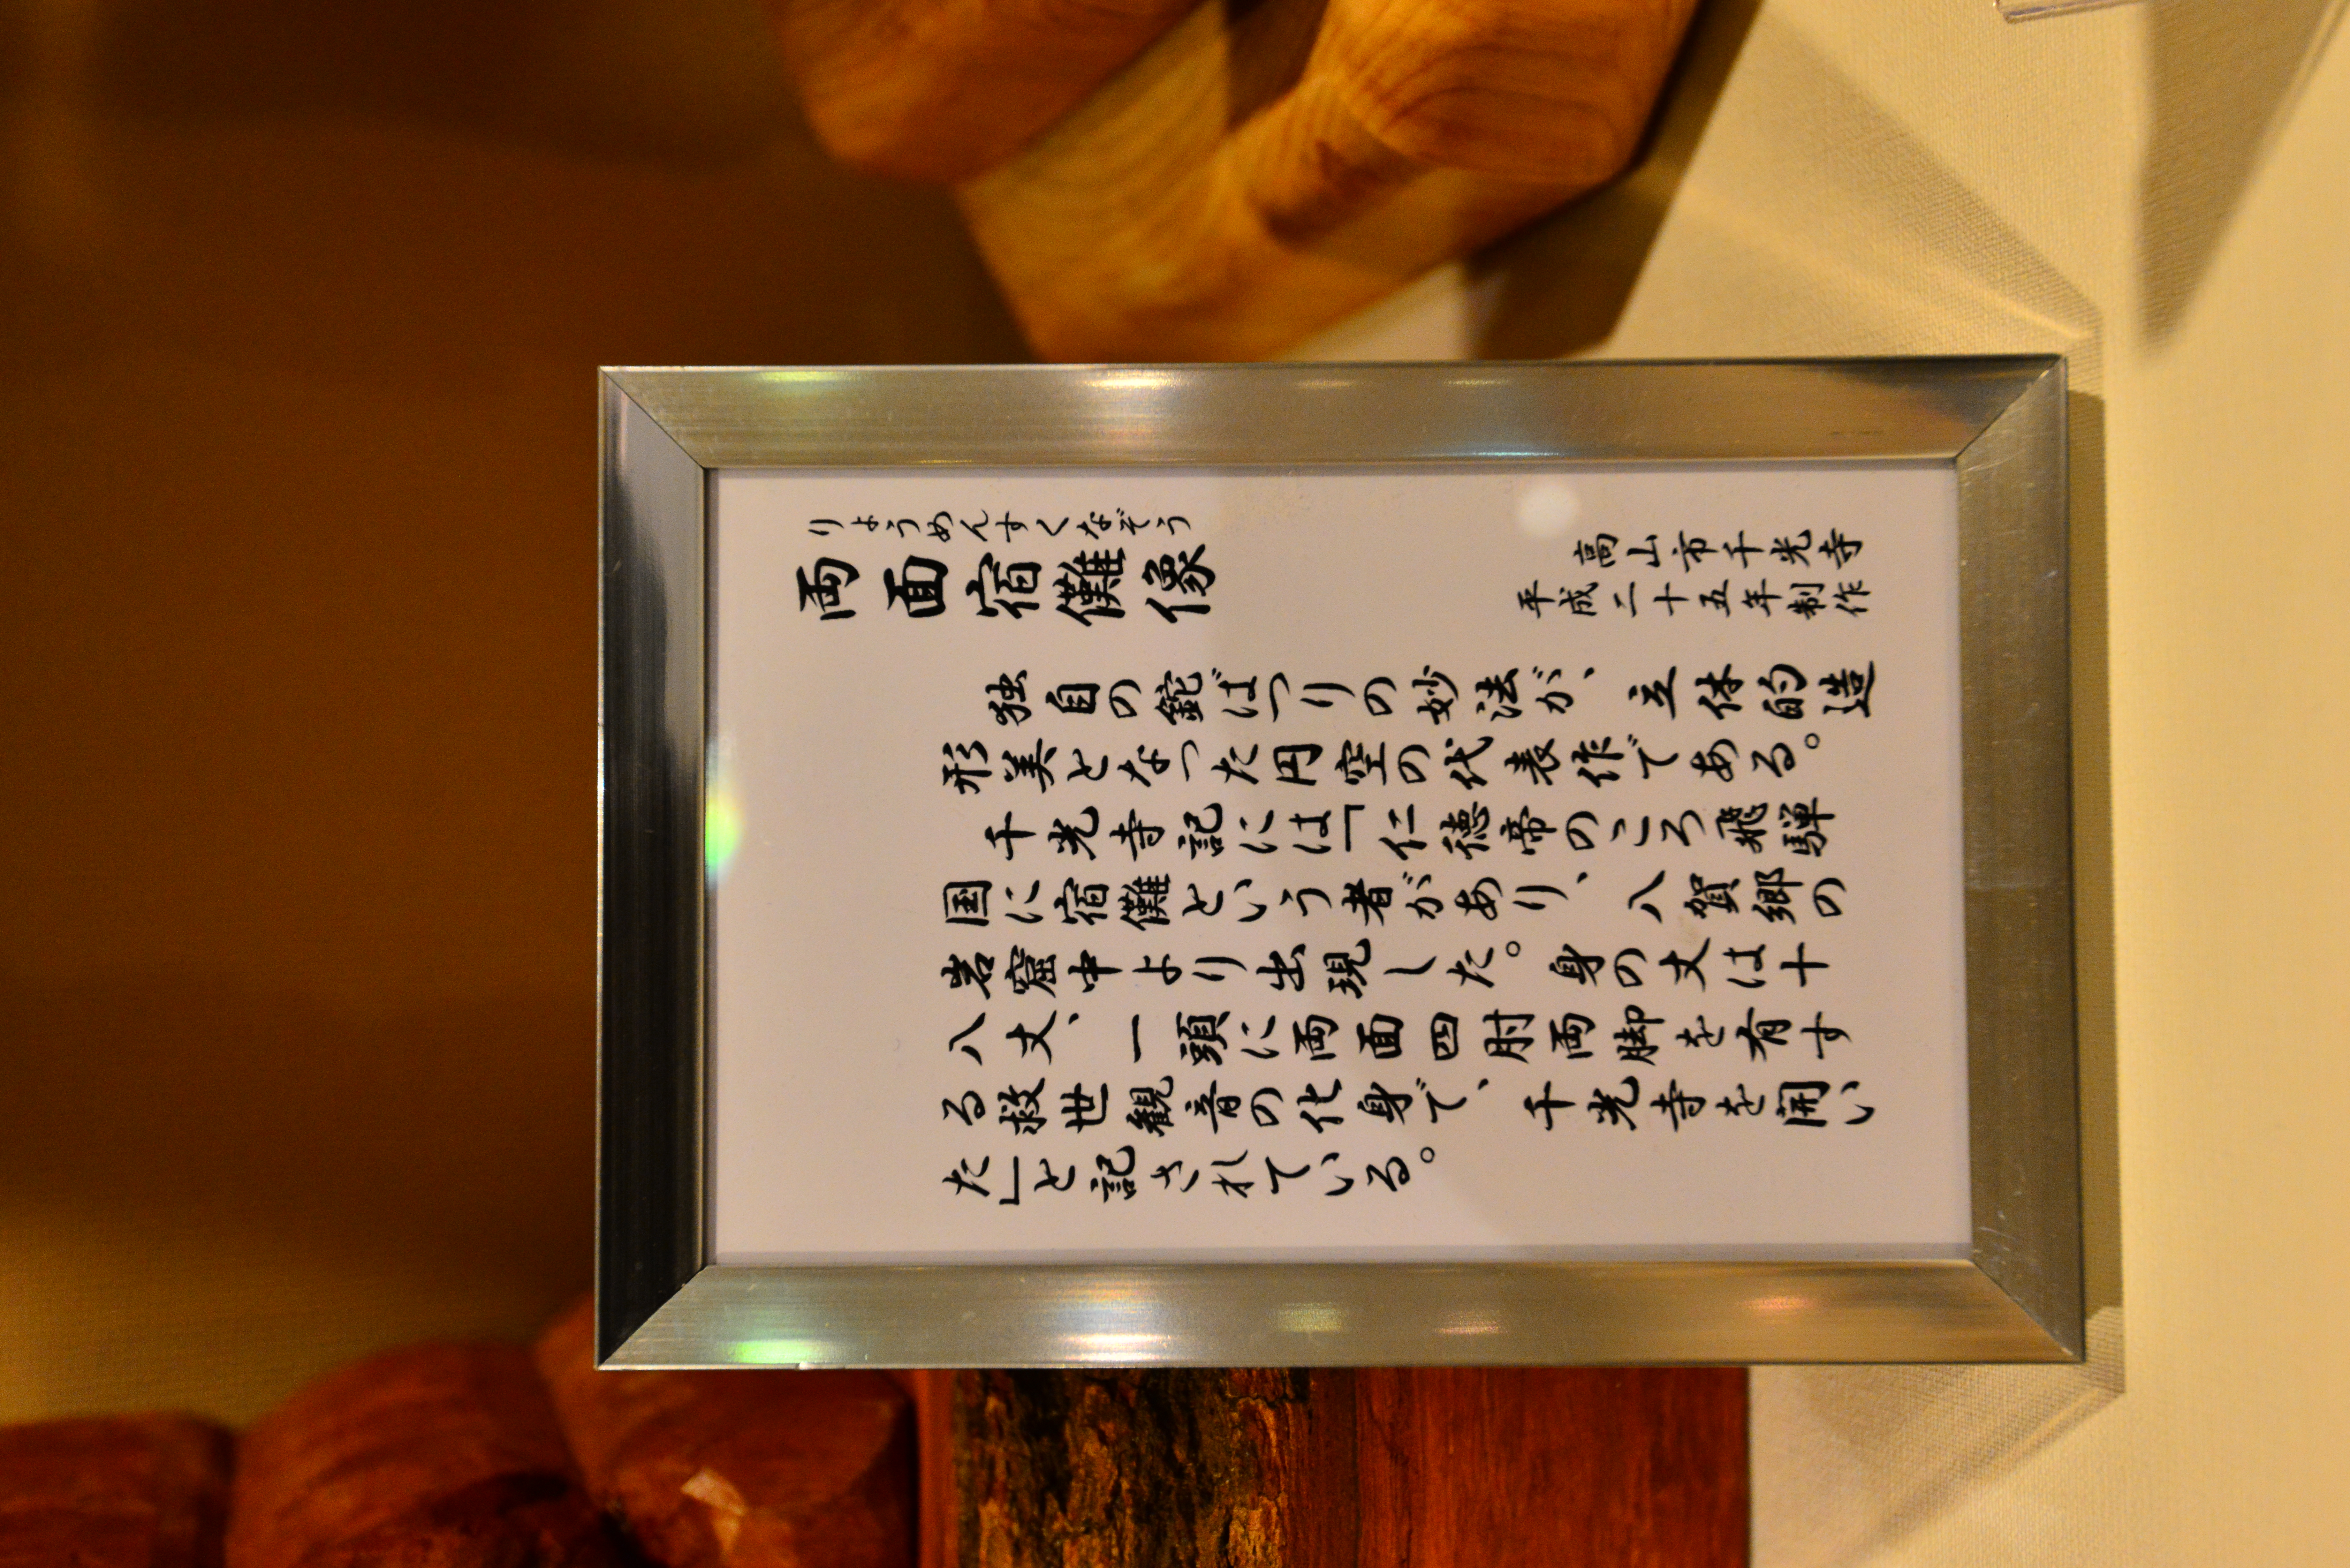 りょうめんすくなぞう
両面宿儺像
高山市千光寺
平成二十五年制作
独自の鉈ばつりの妙法が、立体的造
形美となった円空の代表作である。
千光寺記には「仁徳帝のころ飛騨
国に宿儺という者があり、八賀郷の
岩窟中より出現した。身の丈は十
八丈、一頭に両面四肘両脚を有す
る救世観音の化身で、千光寺を開い
た」と記されている。